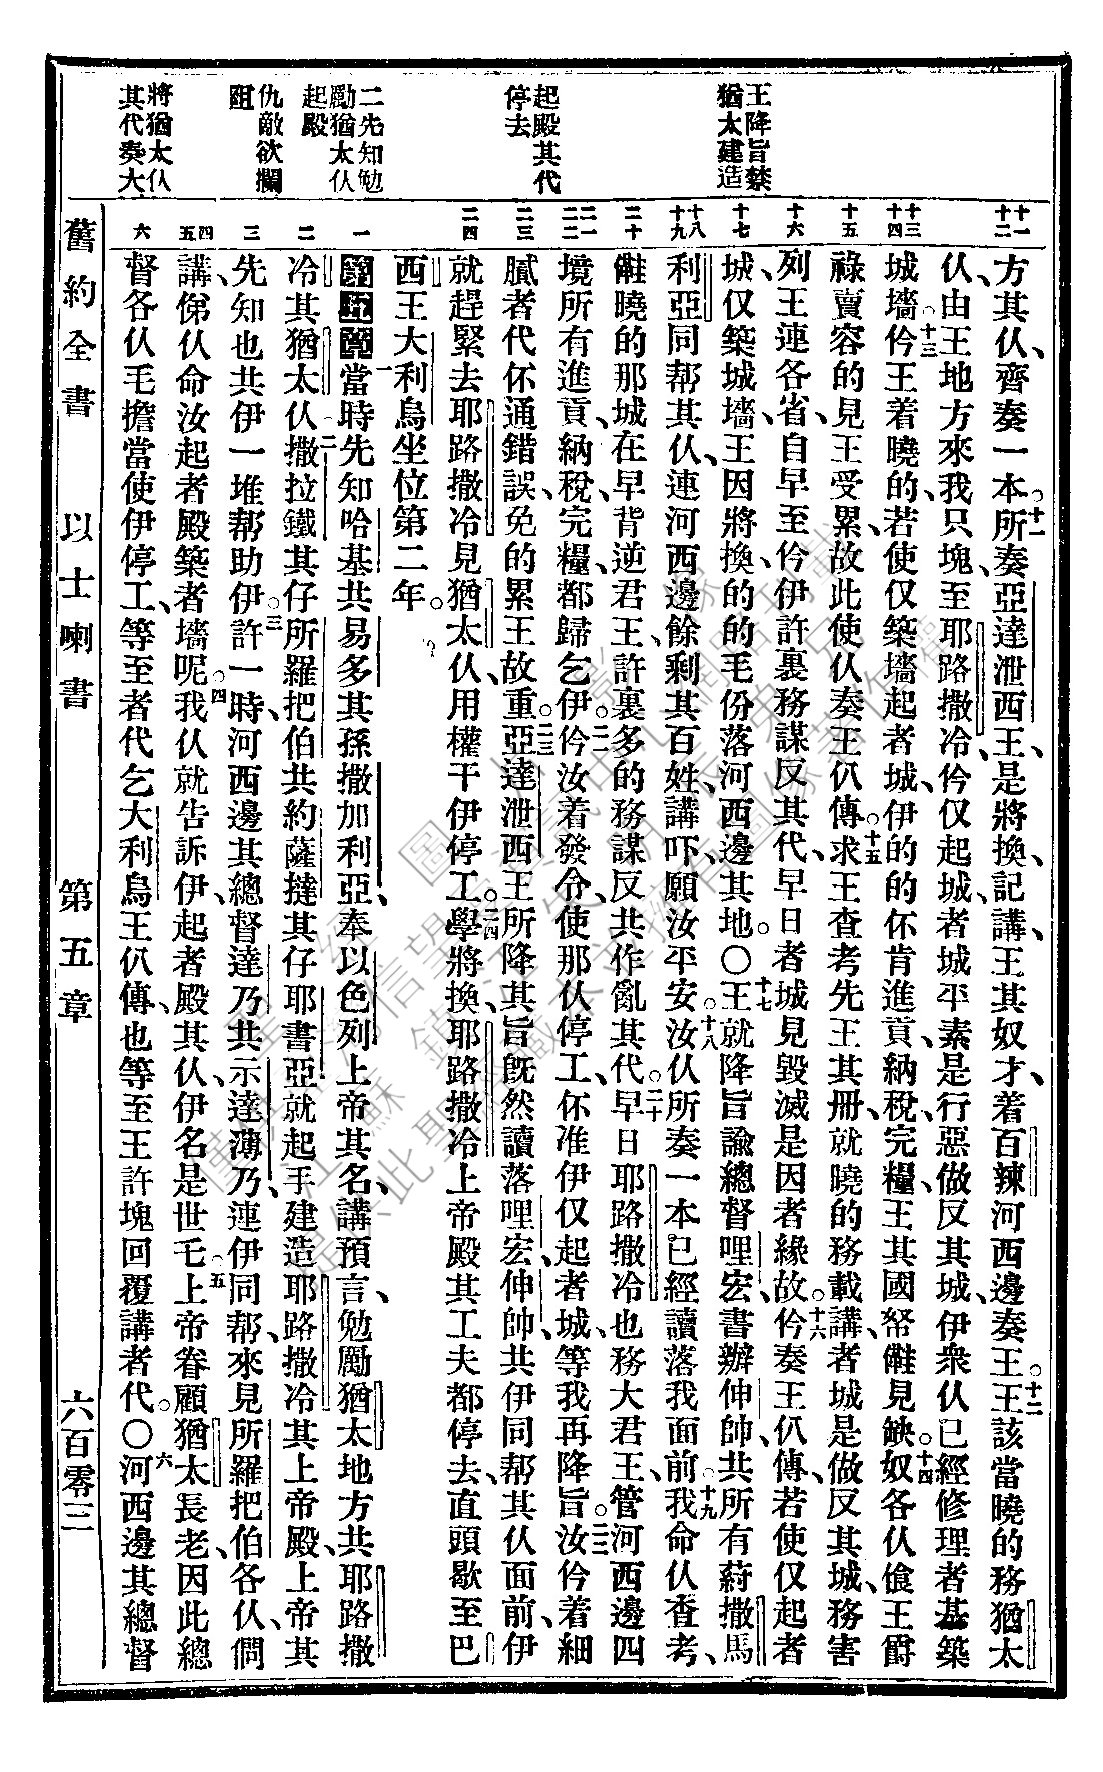 王降旨禁
猶太建造
起殿其代
停去
二先知勉
勵猶太仫
起殿
仇敵欲攔
阻
將猶太仫
其代奏大
十一 十二 十三 十四 十五 十六 十七 十八 十九 二十 二一 二二 二三 二四 一 二 三 四 五 六
方其仫、齊奏一本。十一所奏亞達泄西王、是將換、記講、王其奴才、着百辣河西邊奏王。十二王該當曉的務猶太
仫、由王地方來我只塊、至耶路撒冷、仱仅起城、者城平素是行惡做反其城、伊眾仫已經修理者基築
城墻。十三仱王着曉的、若使仅築墻起者城、伊的的伓肯進貢、納稅、完糧、王其國帑𠍁見缺。十四奴各仫食王爵
祿、賣容的見王受累、故此使仫奏王仈傳。十五求王查考先王其冊、就曉的務載講、者城是做反其城、務害
列王連各省、自早至仱伊許裏務謀反其代、早日者城見毀滅是因者緣故。十六仱奏王仈傳、若使仅起者
城、仅築城墻、王因將換的的毛份落河西邊其地。〇十七王就降旨諭總督哩宏、書辦伸帥、共所有蒔撒馬
利亞同帮其仫、連河西邊餘剩其百姓、講吓、願汝平安。十八汝仫所奏一本、已經讀落我面前。十九我命仫查考、
𠍁曉的那城在早背逆君王、許裏多的務謀反共作亂其代。二十早日耶路撒冷也務大君王、管河西邊四
境、所有進貢、納稅、完糧、都歸乞伊。二一仱汝着發令、使那仫停工、伓准伊仅起者城、等我再降旨。二二汝仱着細
膩者代伓通錯誤、免的累王故重。二三亞達泄西王所降其旨、既然讀落哩宏、伸帥、共伊同帮其仫面前、伊
就趕緊去耶路撒冷見猶太仫、用權干伊停工。二四學將換、耶路撒冷上帝殿其工夫都停去、直頭歇至巴
西王大利烏坐位第二年。
第五章一當時先知哈基、共易多其孫撒加利亞、奉以色列上帝其名、講預言、勉勵猶太地方共耶路撒
冷其猶太仫。二撒拉鐵其仔所羅把伯、共約薩撻其仔耶書亞、就起手建造耶路撒冷其上帝殿、上帝其
先知也共伊一堆帮助伊。三許一時、河西邊其總督達乃、共示達薄乃、連伊同帮、來見所羅把伯各仫、問
講、俤仫命汝起者殿築者墻呢。四我仫就告訴伊、起者殿其仫、伊名是世乇。五上帝眷顧猶太長老、因此總
督各仫毛擔當使伊停工、等至者代乞大利烏王仈傳、也等至王許塊回覆講者代。〇六河西邊其總督
舊約全書 以士喇書 第五章 六百零三